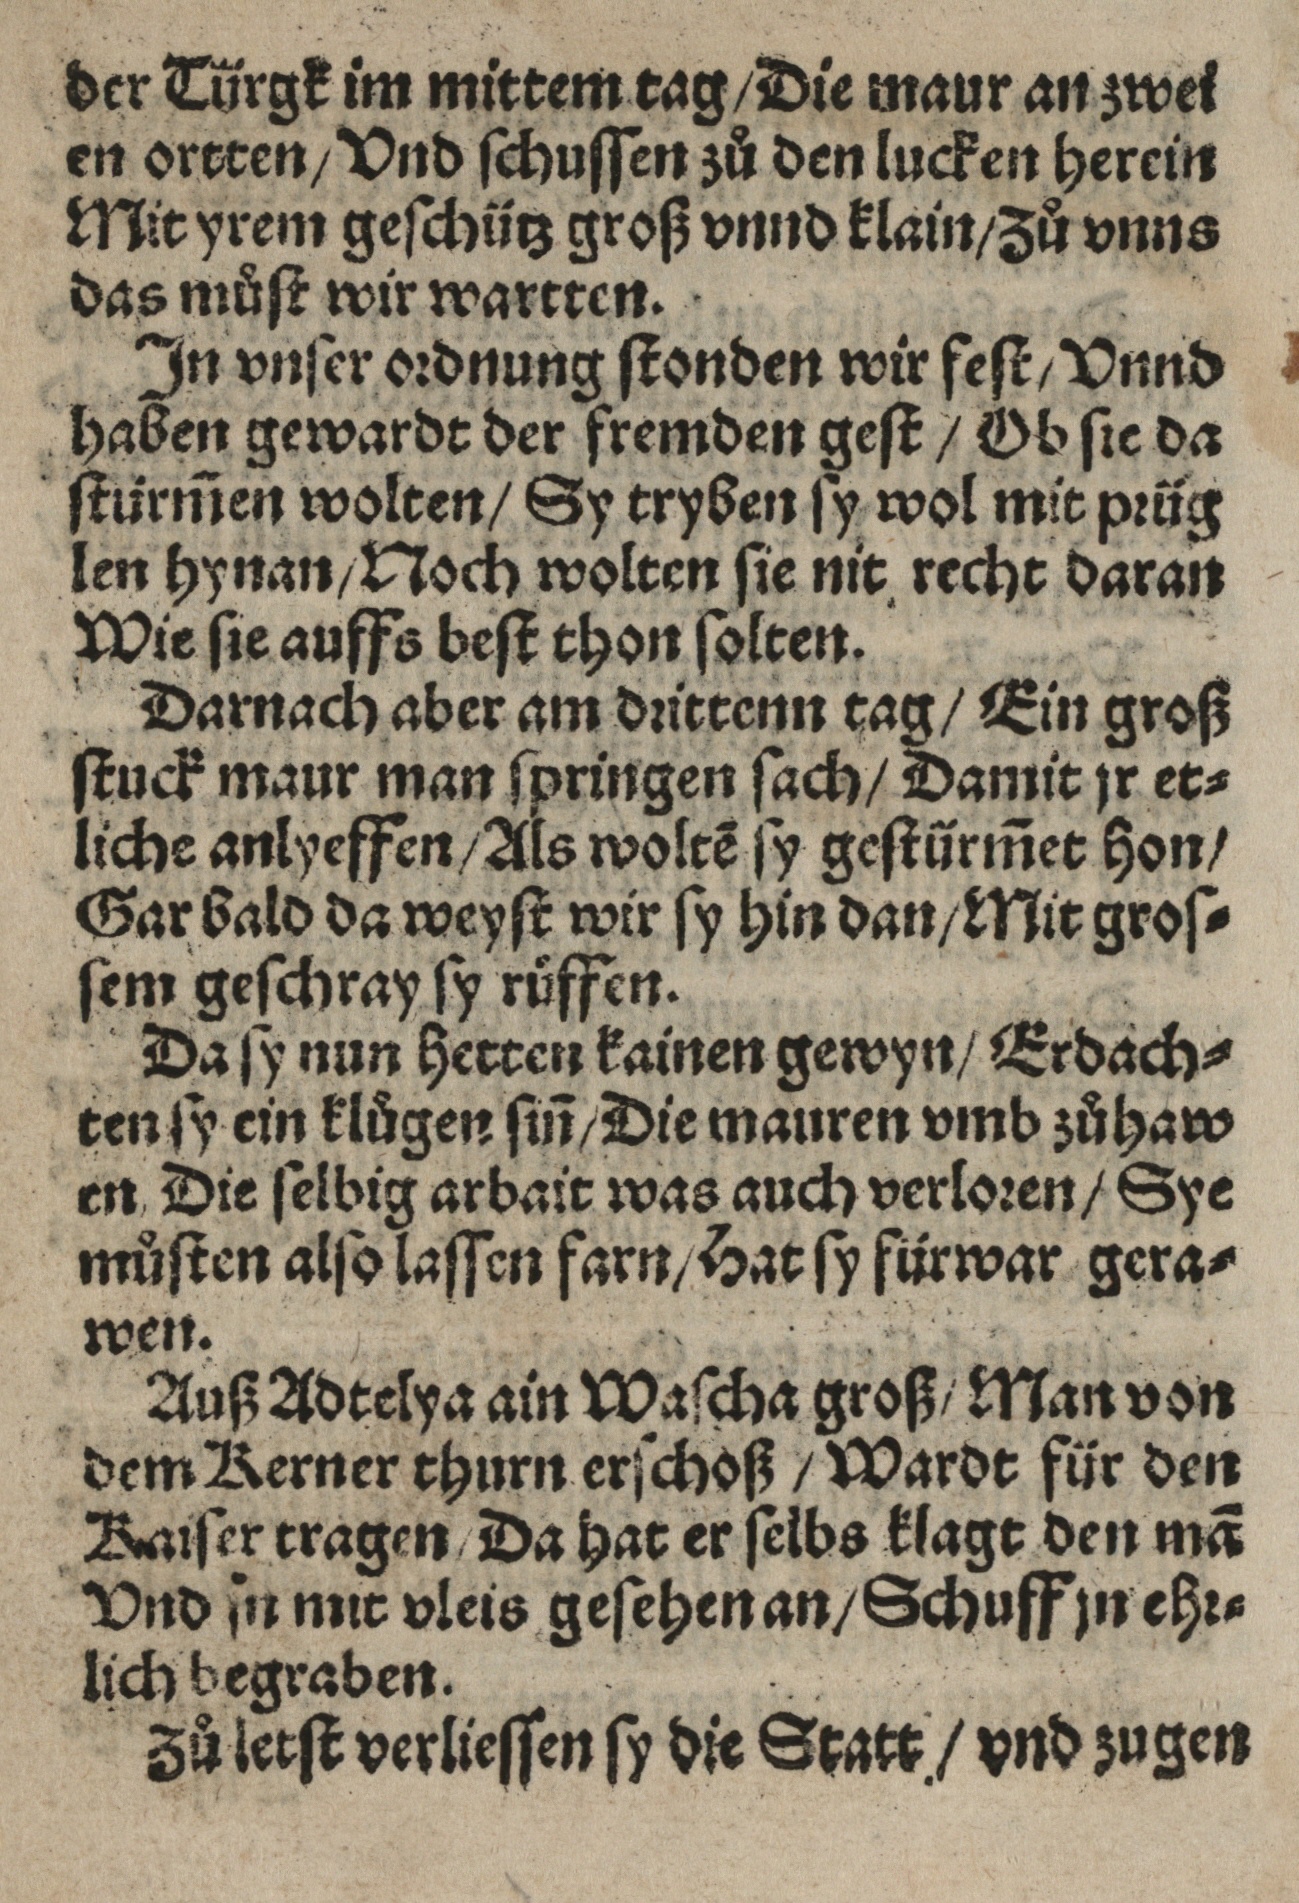 der Türgk im mittem tag / Die maur an zwei
en ortten / Vnd schussen zů den lucken herein
Mit yrem geschütz groß vnnd klain / Zů vnns
das můst wir wartten.
In vnser ordnung stonden wir fest / Vnnd
haben gewardt der fremden gest / Ob sie da
stürm̃en wolten / Sy tryben sy wol mit prüg
len hynan / Noch wolten sie nit recht daran
Wie sie auffs best thon solten.
Darnach aber am drittenn tag / Ein groß
stuck maur man springen sach / Damit jr et⸗
liche anlyeffen / Als woltẽ sy gestürm̃et hon /
Gar bald da weyst wir sy hin dan / Mit gros⸗
sem geschray sy růffen.
Da sy nun hetten kainen gewyn / Erdach⸗
ten sy ein klůgen siñ / Die mauren vmb zůhaw
en / Die selbig arbait was auch verloren / Sye
můsten also lassen farn / Hat sy fürwar gera⸗
wen.
Auß Adtelya ain Wascha groß / Man von
dem Kerner thurn erschoß / Wardt für den
Kaiser tragen / Da hat er selbs klagt den mã
Vnd jn mit vleis gesehen an / Schuff jn ehr⸗
lich begraben.
Zů letst verliessen sy die Statt / vnd zugen